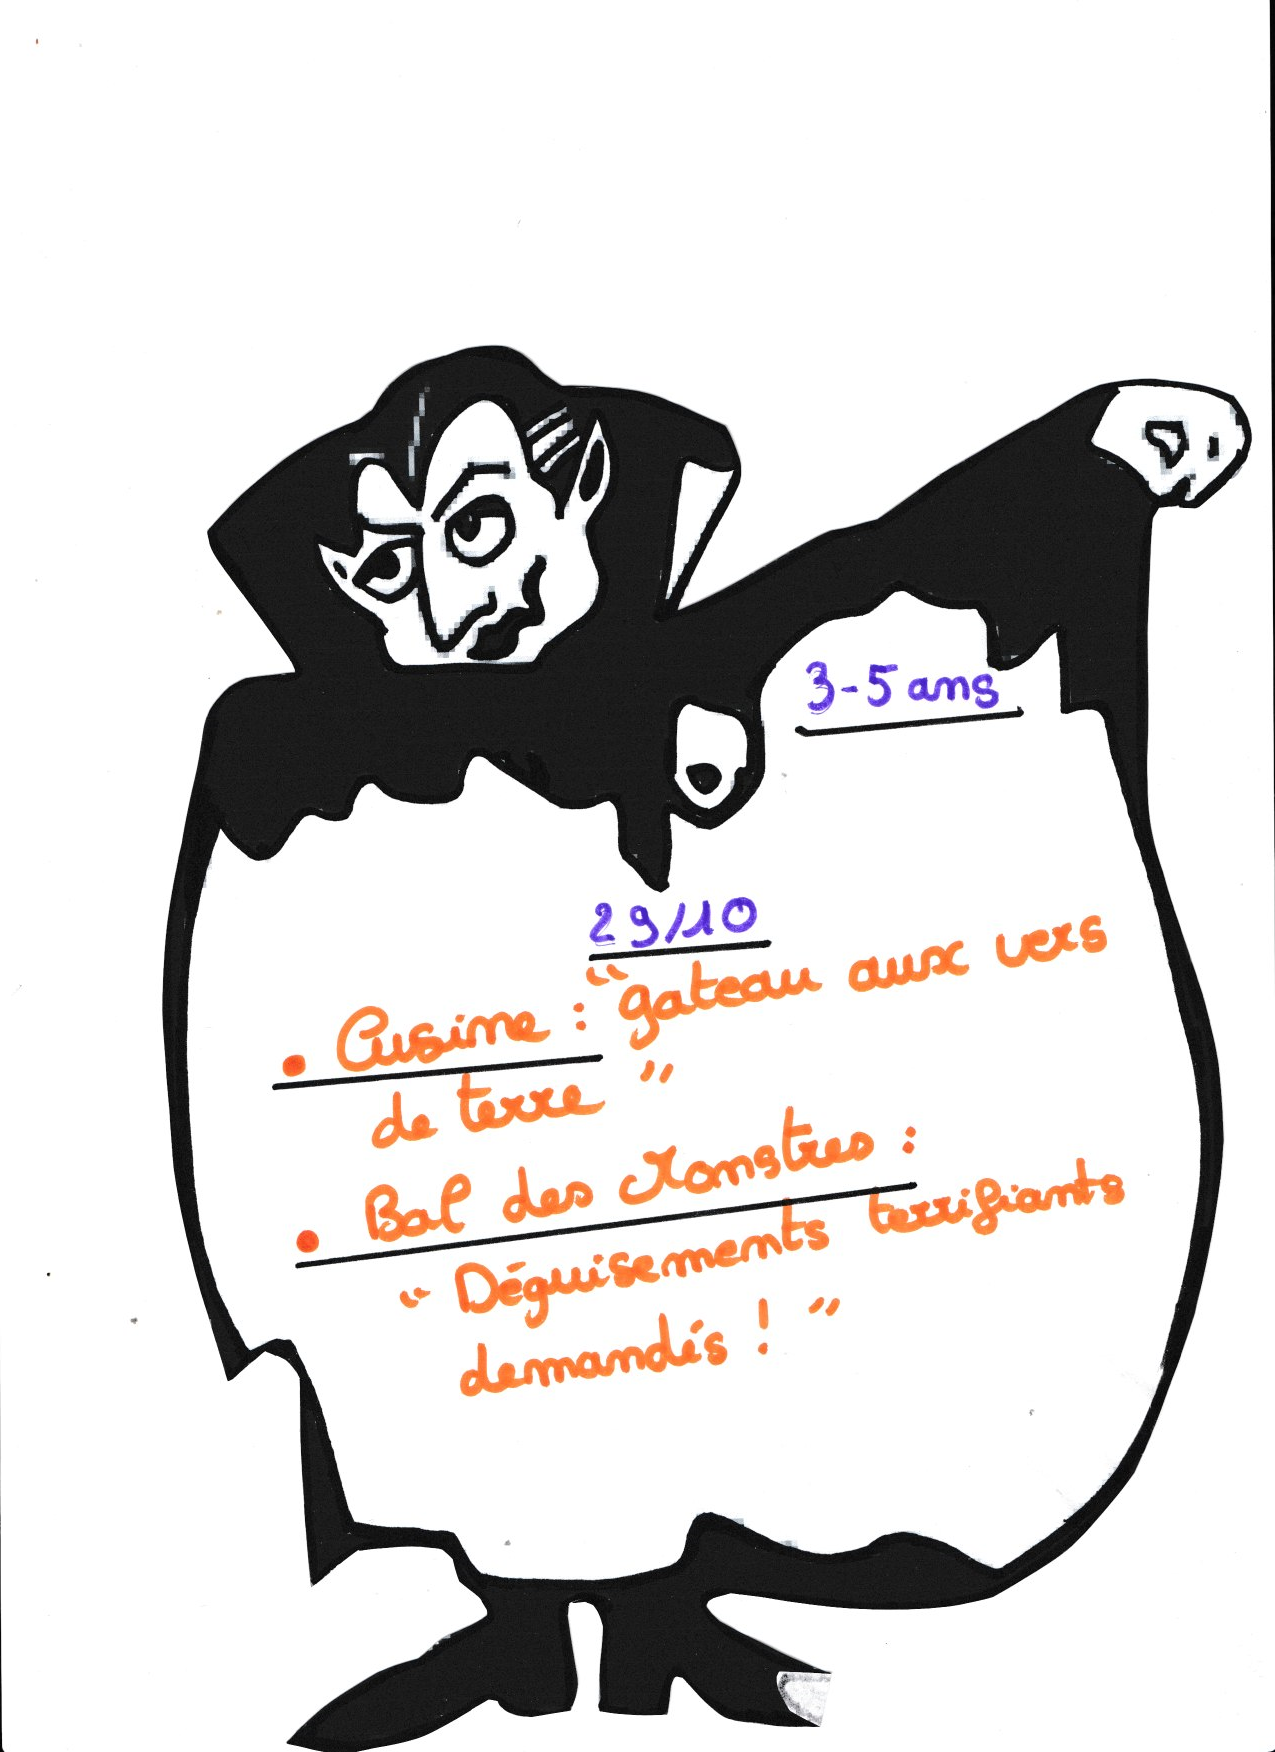 3-5 ans
29/10
• Cuisine : "gateau aux vers
de terre "
• Bal des Monstres :
" Déguisements terrifiants
demandés ! "